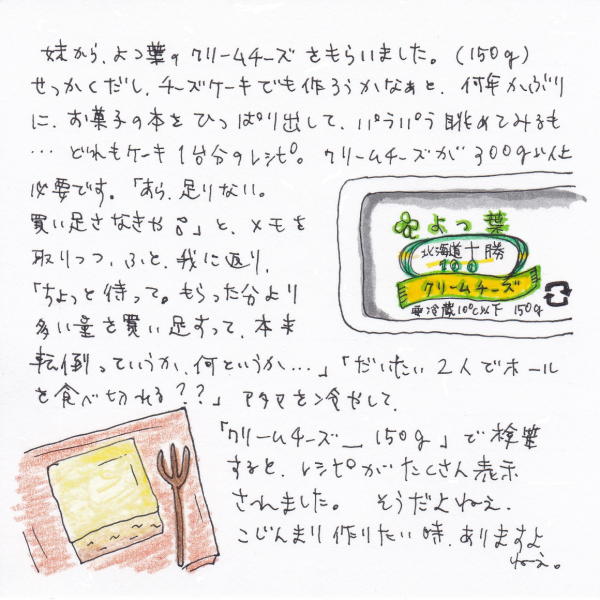 妹から、よつ葉のクリームチーズをもらいました。(150g)
せっかくだし、チーズケーキでも作ろうかなぁと、何年かぶり
に、お菓子の本をひっぱり出して、パラパラ眺めてみるも
… どれもケーキ1台分のレシピ。クリームチーズが300g以上
必要です。「あら、足りない。
買い足さなきゃ♪」と、メモを
取りつつ、ふと、我に返り、
「ちょっと待って。もらった分より
多い量を買い足すって、本末
転倒っていうか、何というか…」「だいたい2人でホール
を食べ切れる??」アタマを冷やして、
「クリームチーズ_150g」で検索
すると、レシピがたくさん表示
されました。そうだよねぇ、
こじんまり作りたい時、ありますよ
ねぇ。
よつ葉
北海道十勝
100
クリームチーズ
要冷蔵10℃以下 150g